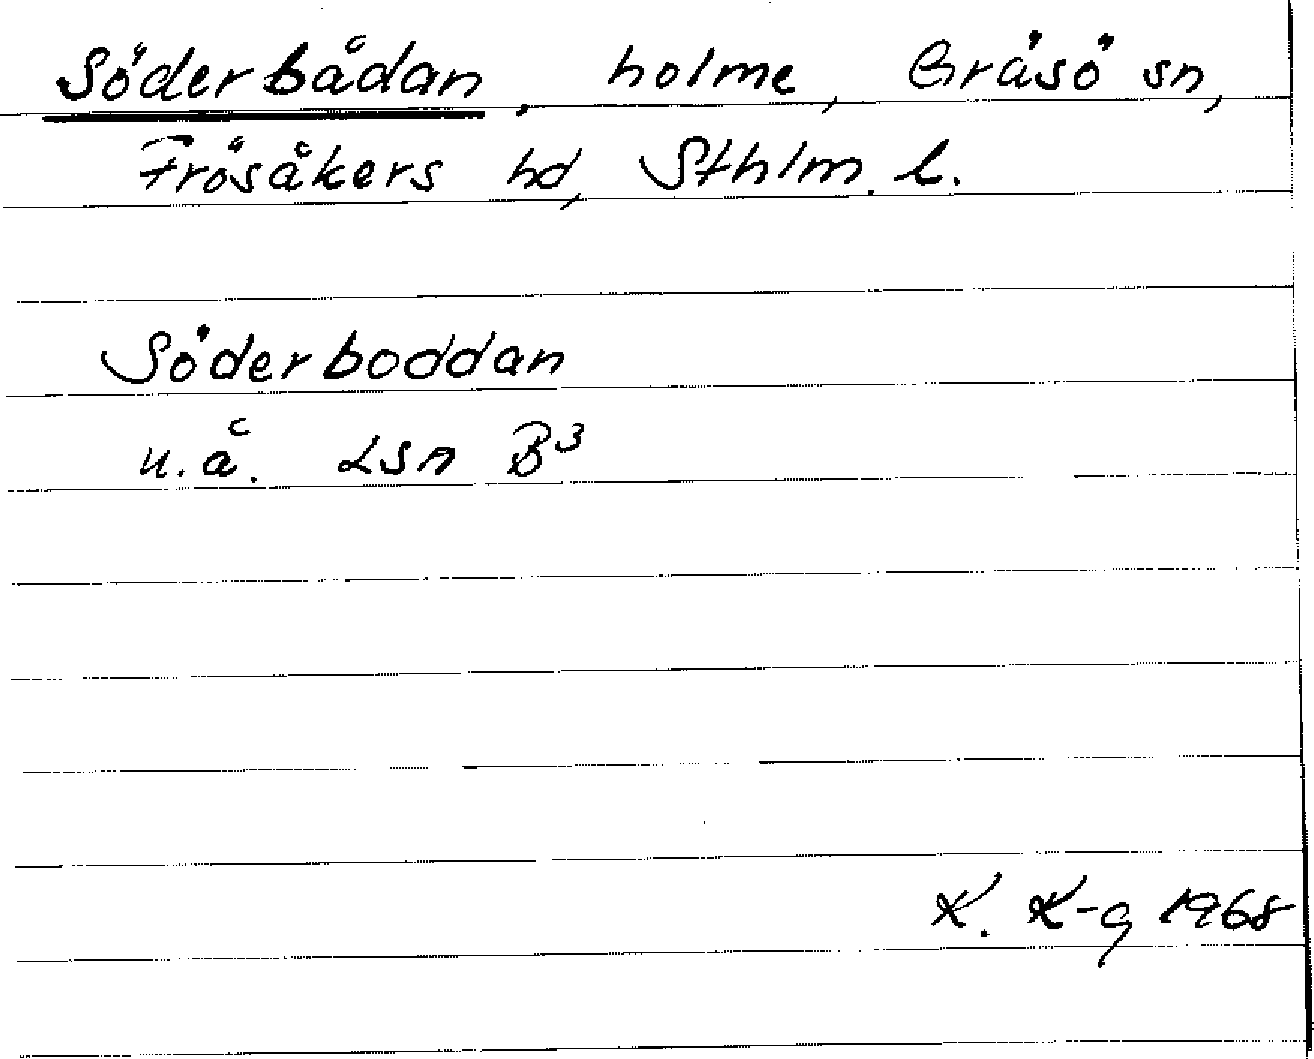 Söderbådan, holme, Gräsö sn,
Frösåkers hd, Sthlm. l.
Söderboddan
u.å. LSA B³
K. K-g 1968